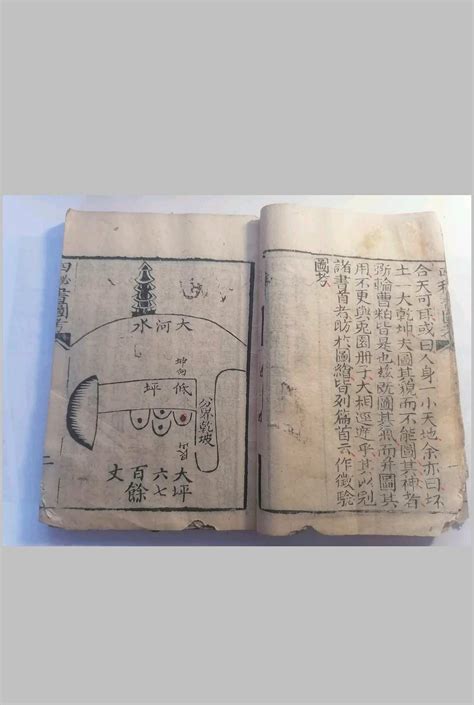 合天可耳或曰人身一小天地余亦曰坏
土一大乾坤夫圖其貌而不能圖其神者
輪曹粕皆是也茲既圖其氣而并圖其
用不更與兎園册子大相逕乎其以別
諸書首考助於圖繪皆列篇首云作徵驗
圖考
大河水
坤向
低坪
分界乾坡
大坪
六七
百餘
丈
二